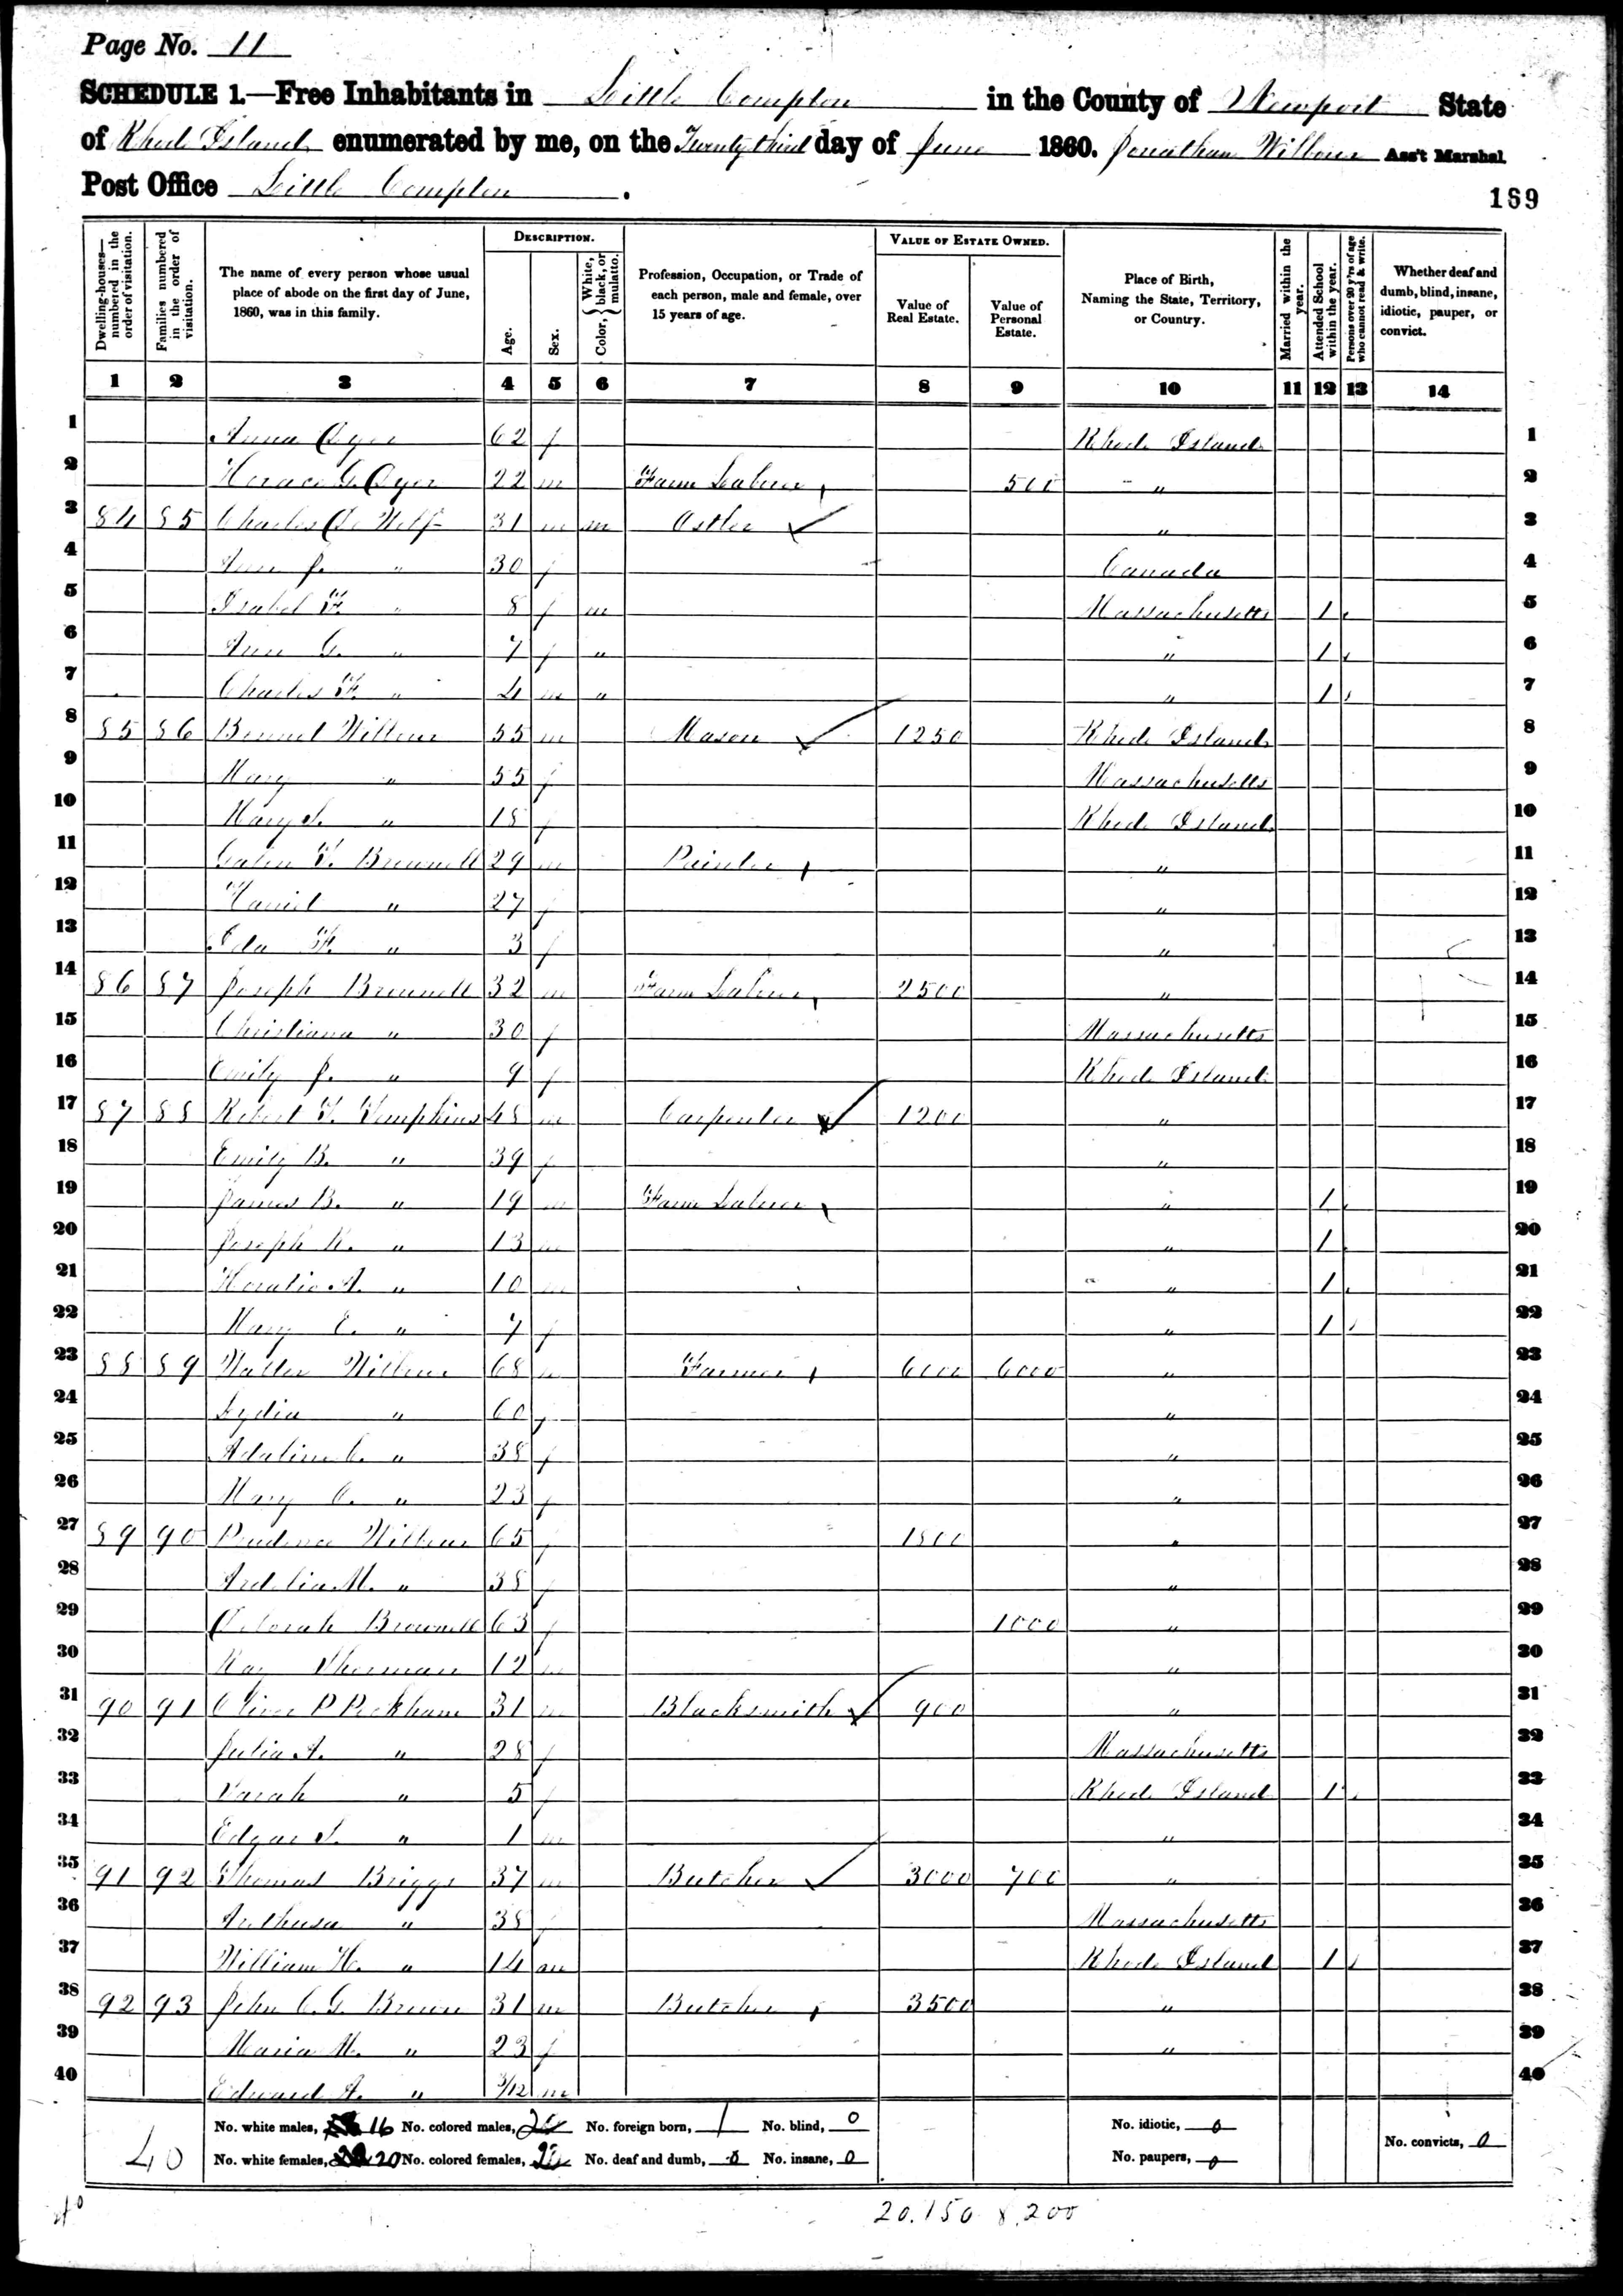 Page No. 11
SCHEDULE 1.—Free Inhabitants in Little Compton in the County of Newport State
of Rhode Island enumerated by me, on the Twenty third day of June 1860. Jonathan Wilbour Ass't Marshal
Post Office Little Compton.
169
Dwelling-houses—numbered in the order of visitation. Families numbered in the order of visitation. The name of every person whose usual place of abode on the first day of June, 1860, was in this family. DESCRIPTION. Age. Sex. Color, {White, black, or mulatto. Profession, Occupation, or Trade of each person, male and female, over 15 years of age. VALUE OF ESTATE OWNED. Value of Real Estate. Value of Personal Estate. Place of Birth, Naming the State, Territory, or Country. Married within the year. Attended School within the year. Persons over 20 y'rs of age who cannot read & write. Whether deaf and dumb, blind, insane, idiotic, pauper, or convict.
1 2 3 4 5 6 7 8 9 10 11 12 13 14
1 Anna 62 f Rhode Island 1
2 Horace G. 22 m Farm Labour 500 " 2
3 84 85 Charles De Wolf 31 m m Ostler " 3
4 Ann J. " 30 f Canada 4
5 Isabel F. " 8 f m Massachusetts 1 5
6 Ann G. " 7 f " " 1 6
7 Charles F. " 4 m " " 1 7
8 85 86 Wilbour 55 m Mason 1250 Rhode Island 8
9 Mary " 55 f Massachusetts 9
10 Mary S. " 18 f Rhode Island 10
11 Galen T. Brownell 29 m Painter " 11
12 Harriet " 27 f " 12
13 Ida F. " 3 f " 13
14 86 87 Joseph Brownell 32 m Farm Labour 2500 " 14
15 Christiana " 30 f Massachusetts 15
16 Emily J. " 9 f Rhode Island 16
17 87 88 Robert T. Tompkins 48 m Carpenter 1200 " 17
18 Emily B. " 39 f " 18
19 James B. " 19 m Farm Labour " 1 19
20 Joseph R. " 13 m " 1 20
21 Horatio A. " 10 m " 1 21
22 Mary E. " 7 f " 1 22
23 88 89 Walter Wilbour 68 m Farmer 6000 6000 " 23
24 Lydia " 60 f " 24
25 Adaline C. " 38 f " 25
26 Mary O. " 23 f " 26
27 89 90 Prudence Wilbour 65 f 1800 " 27
28 Ardelia M. " 38 f " 28
29 Deborah Brownell 63 f 1000 " 29
30 Ray Sherman 12 m " 30
31 90 91 Oliver P Peckham 31 m Blacksmith 900 " 31
32 Julia A. " 28 f Massachusetts 32
33 Sarah " 5 f Rhode Island 1 33
34 Edgar S. " 1 m " 34
35 91 92 Thomas Briggs 37 m Butcher 3000 700 " 35
36 Arethusa " 38 f Massachusetts 36
37 William H. " 14 m Rhode Island 1 37
38 92 93 John C. G. Brown 31 m Butcher 3500 " 38
39 Maria M. " 23 f " 39
40 Edward A. " 3/12 m 40
40 No. white males, 16 No. colored males, 2 No. foreign born, 1 No. blind, 0 No. idiotic, 0
No. white females, 20 No. colored females, 2 No. deaf and dumb, 0 No. insane, 0 No. paupers, 0 No. convicts, 0
20.150 8.200